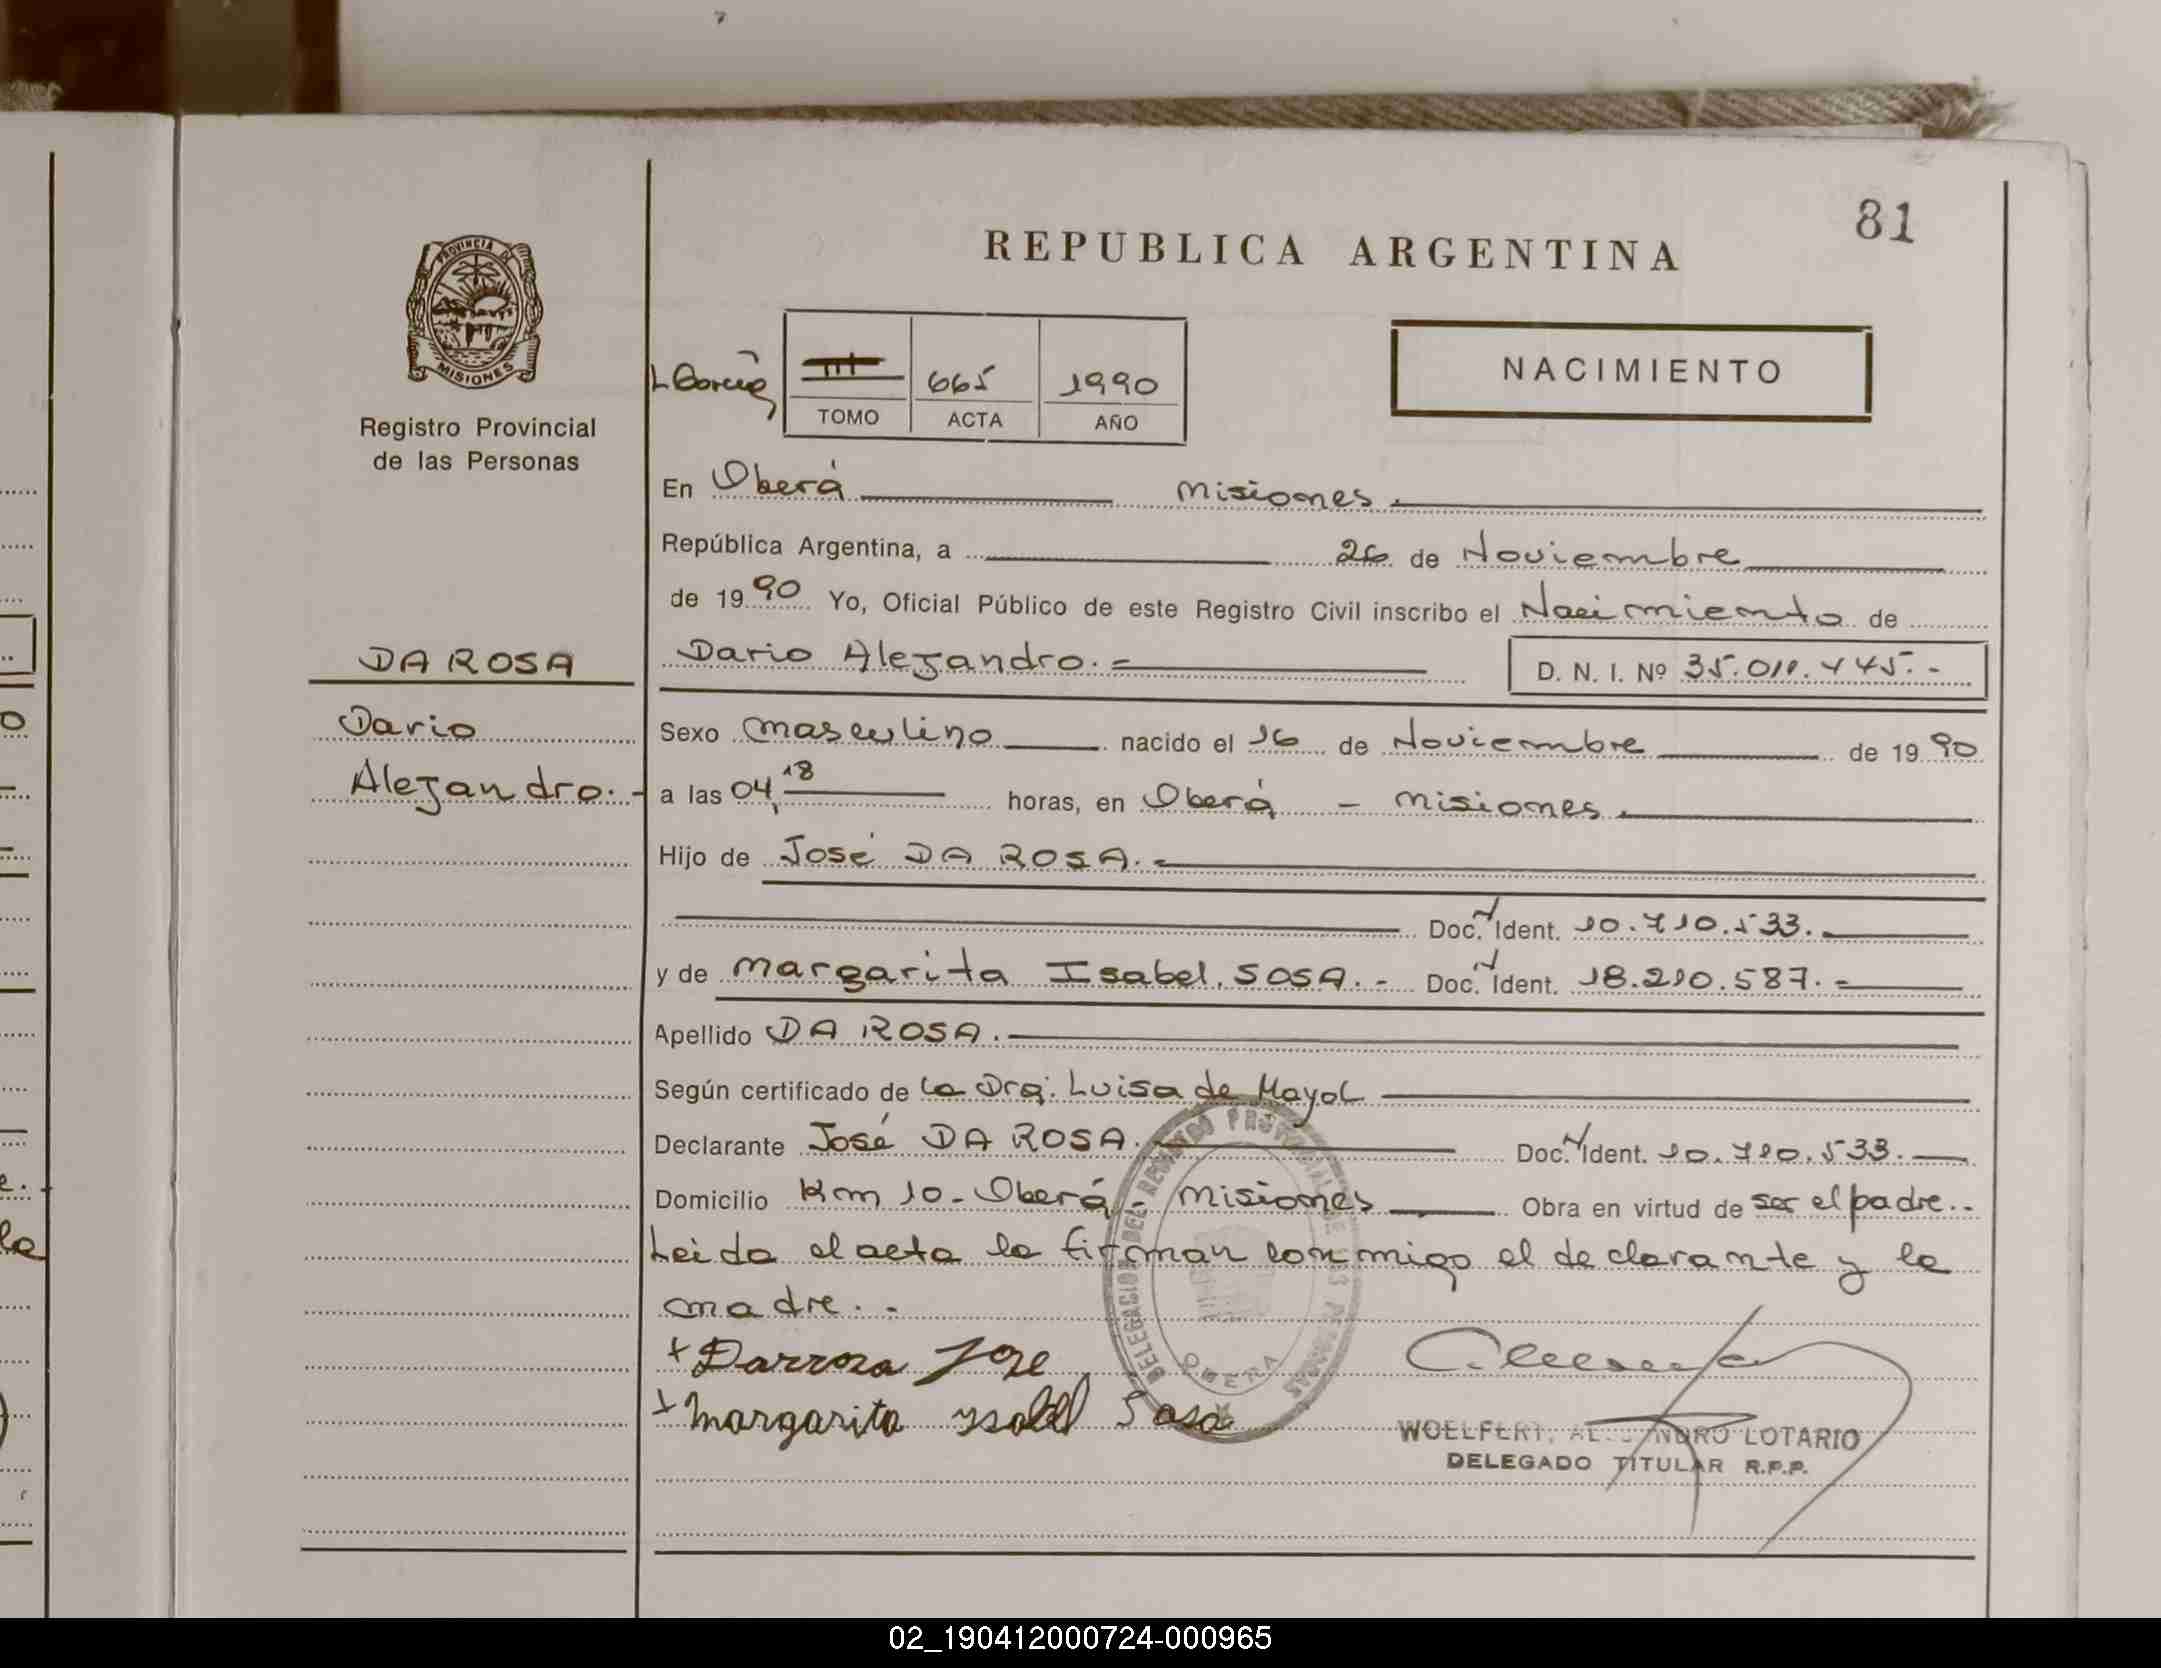 81
REPUBLICA ARGENTINA
PROVINCIA DE
MISIONES
Registro Provincial
de las Personas
III 665 1990
TOMO ACTA AÑO
NACIMIENTO
En Oberá Misiones
República Argentina, a 26 de Noviembre
de 1990 Yo, Oficial Público de este Registro Civil inscribo el Nacimiento de
DA ROSA
Dario Alejandro.=
D. N. I. Nº 35.011.445.-
Dario
Alejandro.-
Sexo masculino nacido el 16 de Noviembre de 1990
a las 04,18 horas, en Oberá - Misiones
Hijo de José DA ROSA.=
Doc. Ident. 10.710.533.
y de Margarita Isabel, SOSA.- Doc. Ident. 18.210.587.=
Apellido DA ROSA.
Según certificado de la Dra. Luisa de Mayol
Declarante José DA ROSA. Doc. Ident. 10.710.533.
Domicilio Km 10- Oberá Misiones Obra en virtud de ser el padre..
Leida el acta la firman conmigo el declarante y la
madre.-
+ Darrosa Jose
+ Margarita ysabel Sosa
DELEGACION DEL REGISTRO PROVINCIAL DE LAS PERSONAS
OBERA
WOELFERT, ALEJANDRO LOTARIO
DELEGADO TITULAR R.P.P.
02_190412000724-000965